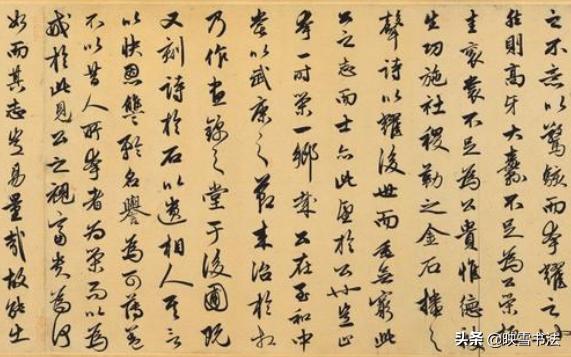 之不意以驚駭而夸耀之
然則高牙大纛不足為公榮
圭袞裳不足為公貴惟德
生功施社稷勒之金石播之
聲詩以耀後世而垂無窮此
公之志而士亦此望於公也豈止
夸一時榮一鄉哉公在至和中
嘗以武康之節來治於相
乃作晝錦之堂于後圃既
又刻詩於石以遺相人其言
以快恩讎矜名譽為可薄蓋
不以昔人所夸者為榮而以為
戒於此見公之視富貴為何
如而其志豈易量哉故能出
头条 @映雪书法